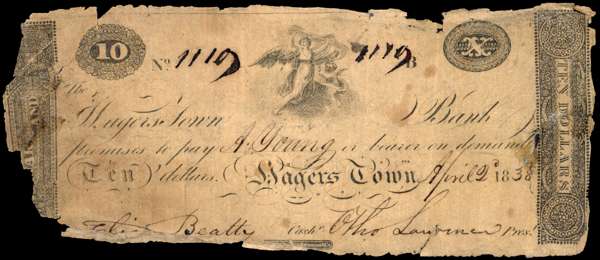 10 No. 1119 1119 B X
The
Hagers Town Bank
promises to pay A. Young or bearer on demand
Ten dollars. Hagers Town April 2d 1838
Elie Beatty Cashr. Otho Lawrence Prest.
TEN DOLLARS